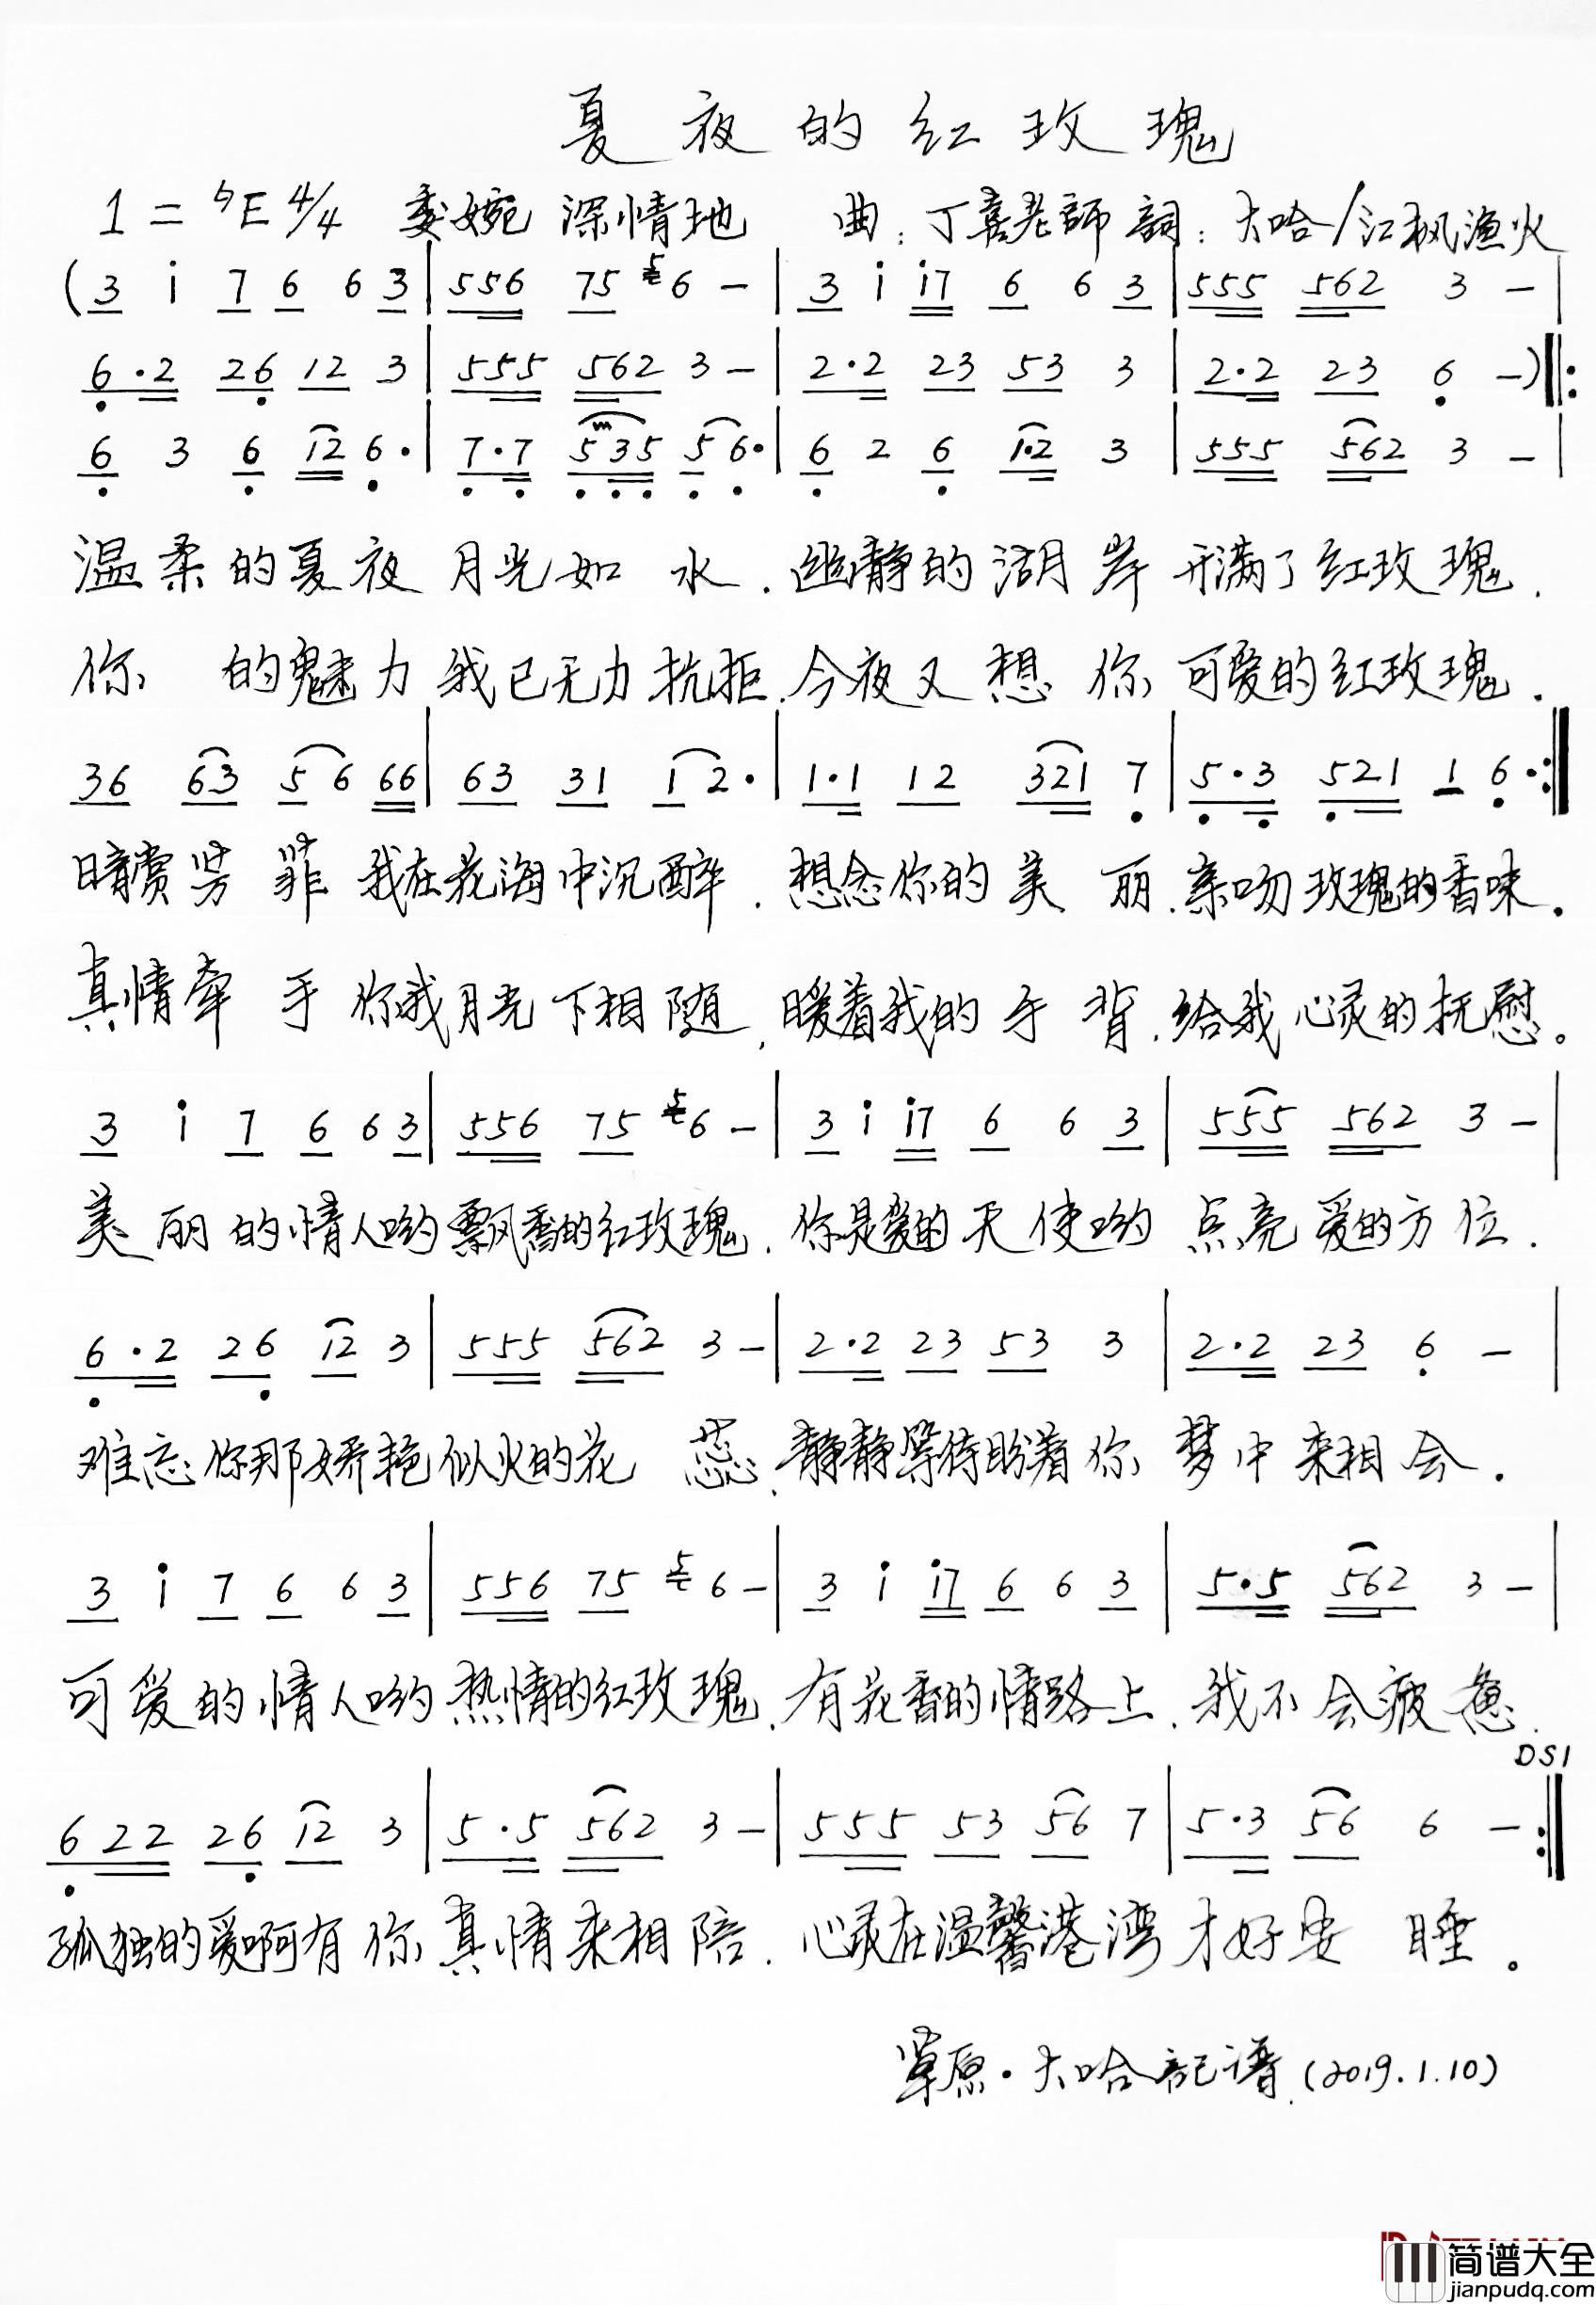 夏夜的红玫瑰
1=♭E 4/4 委婉 深情地 曲:丁喜老師 詞:大哈/江枫渔火
(3 i 7 6 6 3|556 75 5 6 -|3 i i7 6 6 3|555 562 3 -|
6·2 26 12 3|555 562 3 -|2·2 23 53 3|2·2 23 6 -)‖:
6 3 6 12 6·|7·7 535 5 6·|6 2 6 1·2 3|555 562 3 -|
温柔的夏夜 月光如 水.幽静的湖岸 开满了红玫瑰.
你 的魅力 我已无力抗拒.今夜又想 你 可爱的红玫瑰.
36 63 5 6 66|63 31 1 2·|1·1 12 321 7|5·3 521 1 6·:‖
暗赏芳 菲 我在花海中沉醉.想念你的美 丽.亲吻玫瑰的香味.
真情牵 手 你我月光下相随.暖着我的手 背.给我心灵的抚慰。
3 i 7 6 6 3|556 75 5 6 -|3 i i7 6 6 3|555 562 3 -|
美丽的情人哟飘香的红玫瑰.你是爱的天使哟 点亮爱的方位.
6·2 26 12 3|555 562 3 -|2·2 23 53 3|2·2 23 6 -|
难忘你那娇艳似火的花 蕊.静静等待盼着你 梦中来相会.
3 i 7 6 6 3|556 75 5 6 -|3 i i7 6 6 3|5·5 562 3 -|
可爱的情人哟热情的红玫瑰.有花香的情路上.我不会疲惫.
DS1
622 26 12 3|5·5 562 3 -|555 53 56 7|5·3 56 6 -:‖
孤独的爱啊有你真情来相陪.心灵在温馨港湾才好安 睡。
草原·大哈記谱.(2019.1.10)
简谱大全
jianpudq.com